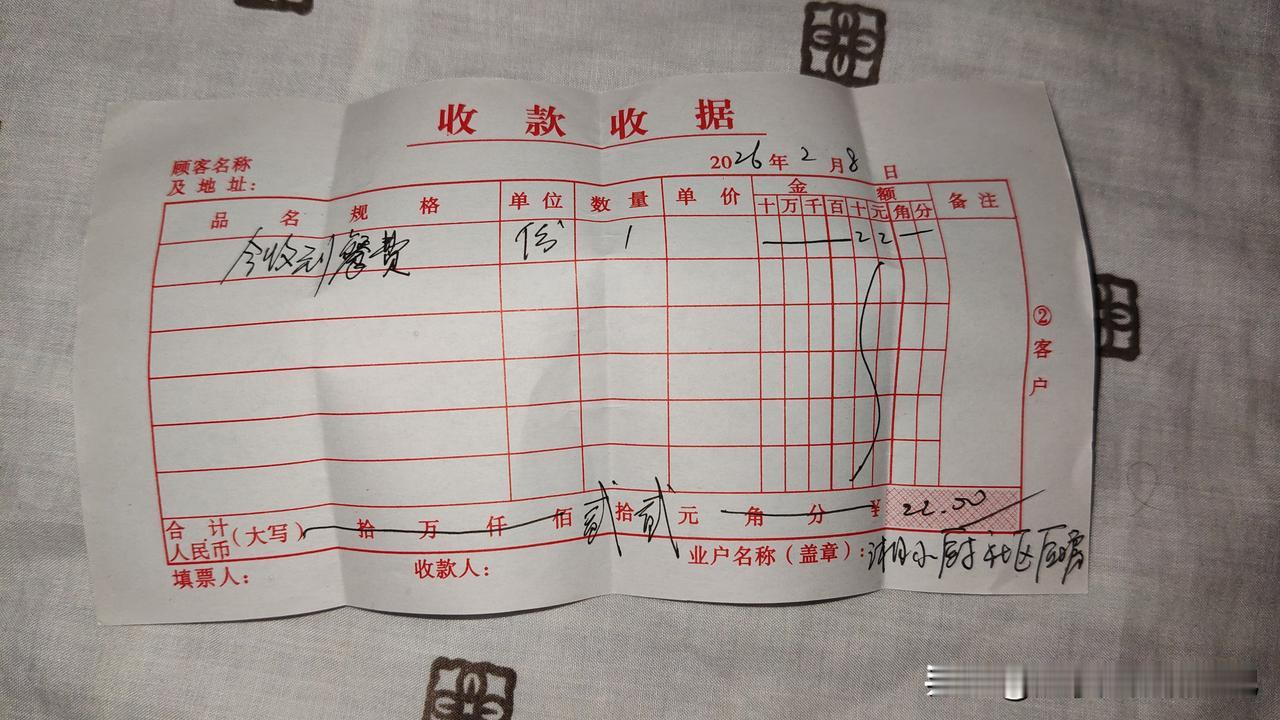 收款收据
2026年2月8日
顾客名称
及地址：
品名规格 单位 数量 单价 金额 备注
十万千百十元角分
今收到餐费 份 1 22
②客户
合计
人民币
（大写） 拾万仟佰贰拾贰元角分 ¥ 22.00
业户名称（盖章）：小厨社区
填票人： 收款人：